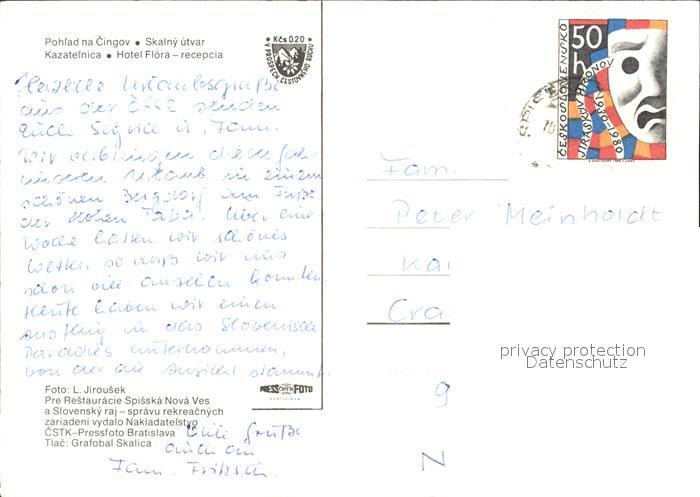 Pohľad na Čingov • Skalný útvar
Kazateľnica • Hotel Flóra – recepcia
Kčs 0.20
V PROSPECH CESTOVNÉHO RUCHU
ČESKOSLOVENSKO
50 h
JIRÁSKŮV HRONOV
1930–1980
Herzliche Urlaubsgrüße
aus der ČSSR senden
Euch Sigrid u. Fam.
Wir verbringen dieses Jahr
unseren Urlaub in einem
schönen Bergdorf am Fuße
der Hohen Tatra. Über eine
Woche hatten wir schönes
Wetter, so daß wir uns
schon viel ansehen konnten.
Heute haben wir einen
Ausflug in das Slovenische
Paradies unternommen,
von der die Ansicht stammt.
Viele Grüße
auch an
Fam. Fritzsch.
Fam.
Peter Meinholdt
Ka
Cra
9
N
privacy protection
Datenschutz
PRESSFOTO
BRATISLAVA
Foto: L. Jiroušek
Pre Reštaurácie Spišská Nová Ves
a Slovenský raj – správu rekreačných
zariadení vydalo Nakladateľstvo
ČSTK–Pressfoto Bratislava
Tlač: Grafobal Skalica